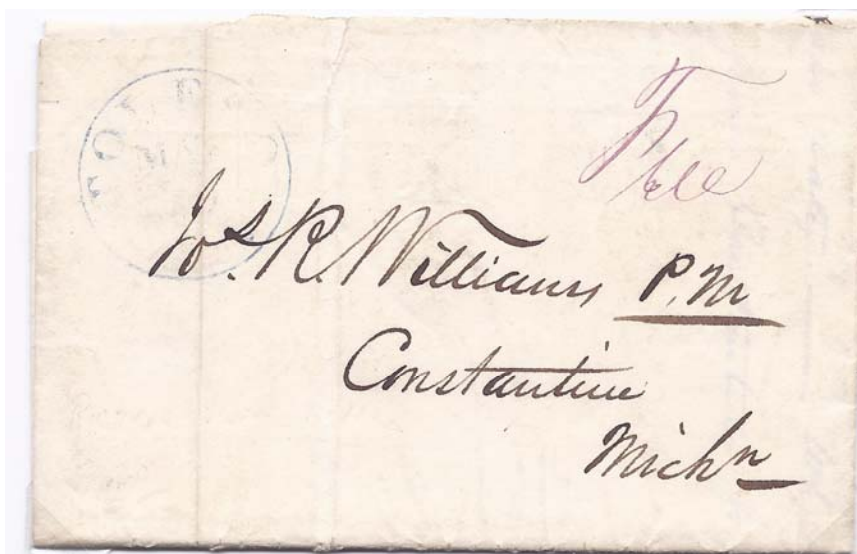 TOLEDO
MAY
Free
Jos. R. Williams P.M
Constantine
Michn